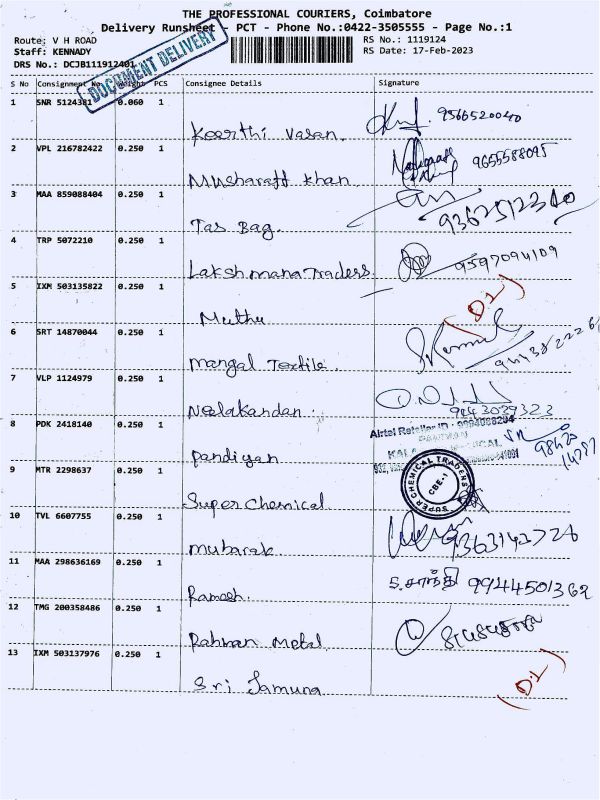 THE PROFESSIONAL COURIERS, Coimbatore
Delivery Runsheet - PCT - Phone No.:0422-3505555 - Page No.:1
Route: V H ROAD
RS No.: 1119124
Staff: KENNADY
RS Date: 17-Feb-2023
DRS No.: DCJB111912401
DOCUMENT DELIVERY
S No Consignment No Weight PCS Consignee Details Signature
1 SNR 5124381 0.060 1
Keerthi Vasan. 9566520040
2 VPL 216782422 0.250 1
Musharaff Khan 9655588095
3 MAA 859088404 0.250 1
Tas Bag.
4 TRP 5072210 0.250 1
Lakshmana Traders 9597094109
5 IXM 503135822 0.250 1
Muthu (D.1)
6 SRT 14870044 0.250 1
Mangal Textile.
7 VLP 1124979 0.250 1
Neelakandan. 9443029323
8 PDK 2418140 0.250 1
Pandiyan
Airtel Retailer ID - 9994088204
9 MTR 2298637 0.250 1
Super Chemical
SUPER CHEMICAL TRADERS
CBE-1
10 TVL 6607755 0.250 1
Mubarak. 9363143726
11 MAA 298636169 0.250 1
Ramesh. 9944501362
12 TMG 200358486 0.250 1
Rahman Metal
13 IXM 503137976 0.250 1
Sri Jamuna (D.1)